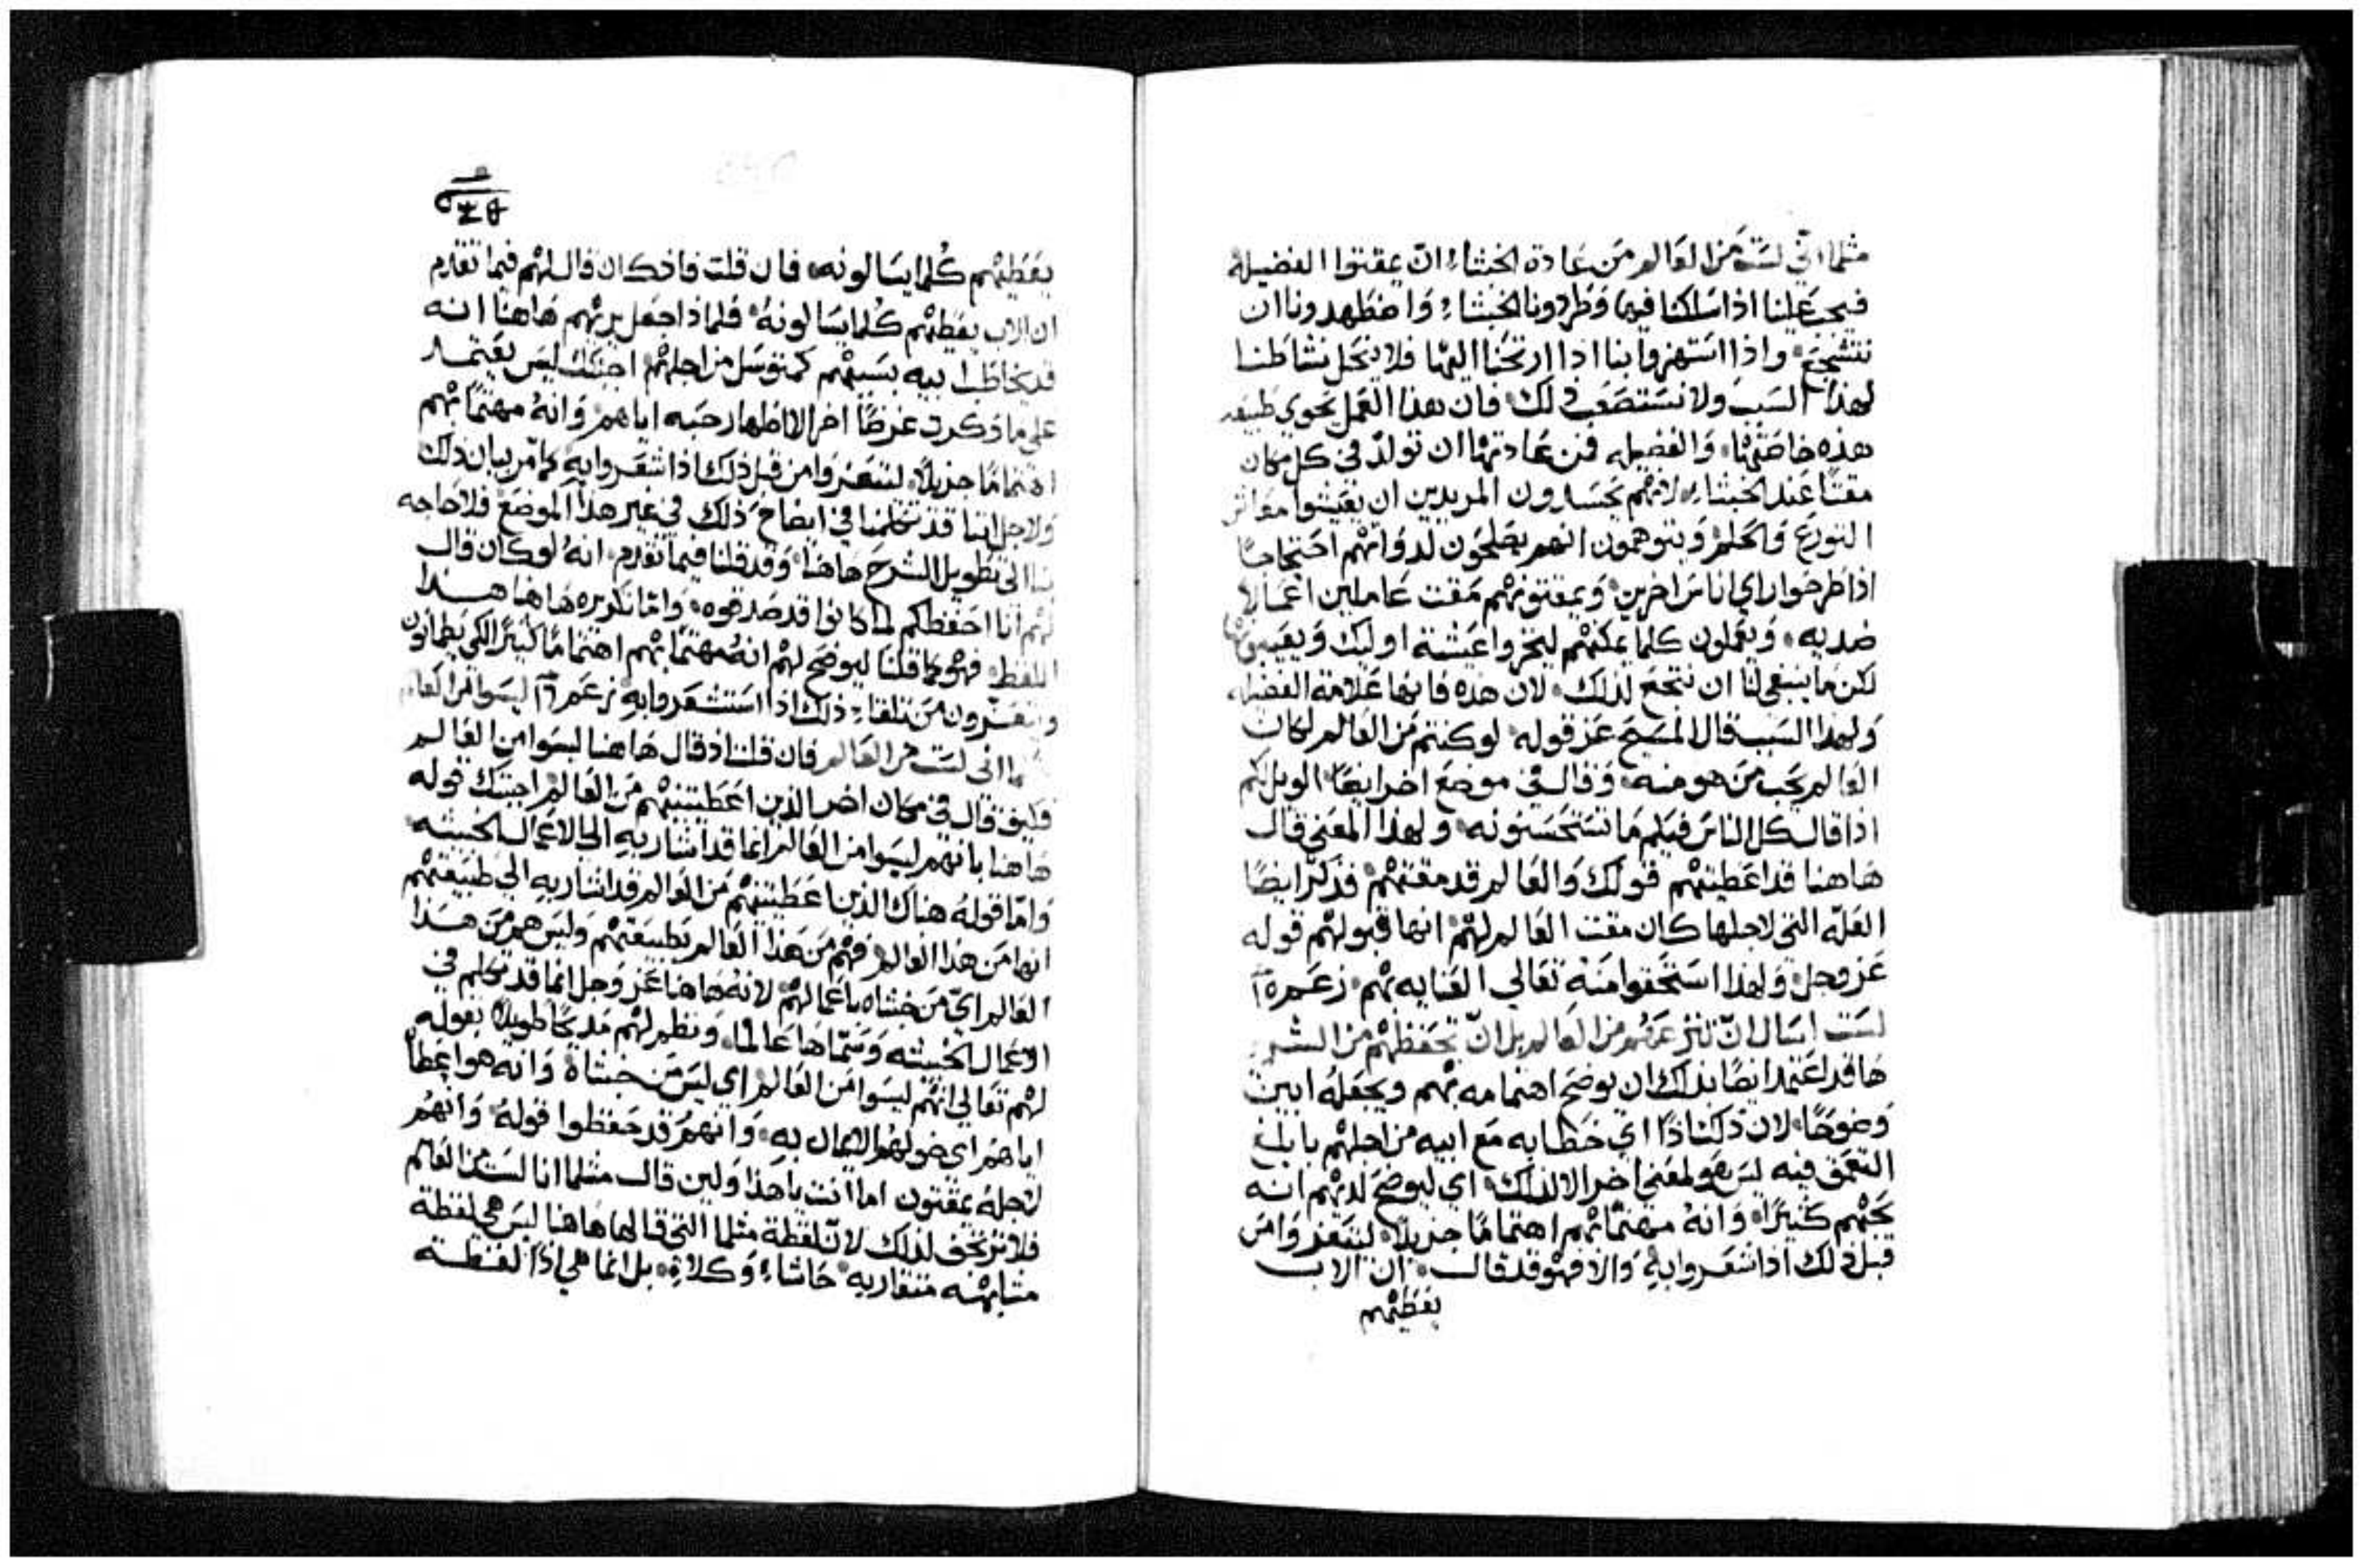 مثلما اني لست من العالم من عادة الخبثاء ان يمقتوا الفضيله
فيجب علينا اذا سلكنا فيها وطردونا الخبثاء واضطهدونا ان
نتشجع واذا استهزوا بنا اذا ارتحنا اليها فلا ينحل نشاطنا
لهذا السبب ولا نستصعب ذلك فان هذا العمل يحوي طبيعه
هذه خاصتها والفضيله فمن عادتها ان تولد في كل مكان
مقتا عند الخبثاء لانهم يحسدون المريدين ان يعيشوا
التورع والحلم ويتوهمون انهم يصلحون لدواتهم احتجاجا
اذا طرحوا راي اناس اخرين ويمقتونهم مقت عاملين اعمالا
ضديه ويعملون كلما يمكنهم ليخزوا عيشة اوليك ويعيبونها
لكن ما ينبغي لنا ان نتجع لذلك لان هذه فانها علامة الفضيله
ولهذا السبب قال المسيح عز قوله لو كنتم من العالم لكان
العالم يحب من هو منه وقال في موضع اخر ايضا الويل لكم
اذا قال كل الناس فيكم ما تستحسنونه ولهذا المعني قال
هاهنا قد اعطيتهم قولك والعالم قد مقتهم فذكر ايضا
العله التي لاجلها كان مقت العالم لهم انها قبولهم قوله
عز وجل ولهذا استحقوا منه تعالي العنايه بهم زعم
لست اسال ان تنزعهم من العالم بل ان تحفظهم من الشر
ها قد اعتمد ايضا بذلك ان يوضح اهتمامه بهم ويجعله ابين
وضوحا لان ذكر هذا اي خطابه مع ابيه من اجلهم بابلغ
التعمق فيه ليس هو لمعني اخر الا لذلك اي ليوضح لديهم انه
يحبهم كثيرا وانه مهتما بهم اهتماما جزيلا ليتعزوا من
قبل ذلك اذا شعروا به والا فهو قد قال ان الاب
يعطيهم
يعطيهم كلما يسالونه فان قلت فاذ كان قال لهم فيما تقدم
ان الاب يعطيهم كلما يسالونه فلماذا جعل يريهم هاهنا انه
قد يخاطب ابيه بسببهم كمتوسل من اجلهم اجبتك ليس يعتمد
علي ما ذكرت غرضا اخر الا اظهار حبه اياهم وانه مهتما بهم
اهتماما جزيلا ليتعزوا من قبل ذلك اذا شعروا به كما مر بيان ذلك
ولاجل اننا قد تكلمنا في ايضاح ذلك في غير هذا الموضع فلا حاجه
بنا الي تطويل الشرح هاهنا وقد قلنا فيما تقدم انه لو كان قال
لهم انا احفظكم لما كانوا قد صدقوه واما تكريره هاهنا هذا
اللفظ فهو كما قلنا ليوضح لهم انه مهتما بهم اهتماما كثيرا لكي يطمانون
ويتعزون من تلقاء ذلك اذا استشعروا به زعم ليسوا من العالم
كما اني لست من العالم فان قلت اذ قال هاهنا ليسوا من العالم
فكيف قال في مكان اخر الذين اعطيتنيهم من العالم اجبتك قوله
هاهنا بانهم ليسوا من العالم انما قد اشار به الي الاعمال الخبيثه
واما قوله هناك الذين اعطيتنيهم من العالم قد اشار به الي طبيعتهم
انها من هذا العالم فهم من هذا العالم بطبيعتهم وليس هم من هذا
العالم اي من خبثاه باعمالهم لانه هاهنا عز وجل انما قد تكلم في
الاعمال الخبيثه وسماها عالما ونظم لهم مديحا طويلا بقوله
لهم تعالي انهم ليسوا من العالم اي ليس من خبثاه وانه هو اعطا
اياهم اي خولهم الايمان به وانهم قد حفظوا قوله وانهم
لاجله يمقتون اما انت يا هذا ولين قال مثلما انا لست من العالم
فلا ترتجف لذلك لان لفظة مثلما التي قالها هاهنا ليس هي لفظة
مشابهه متقاربه حاشاء وكلاة بل انما هي اذا لفظته